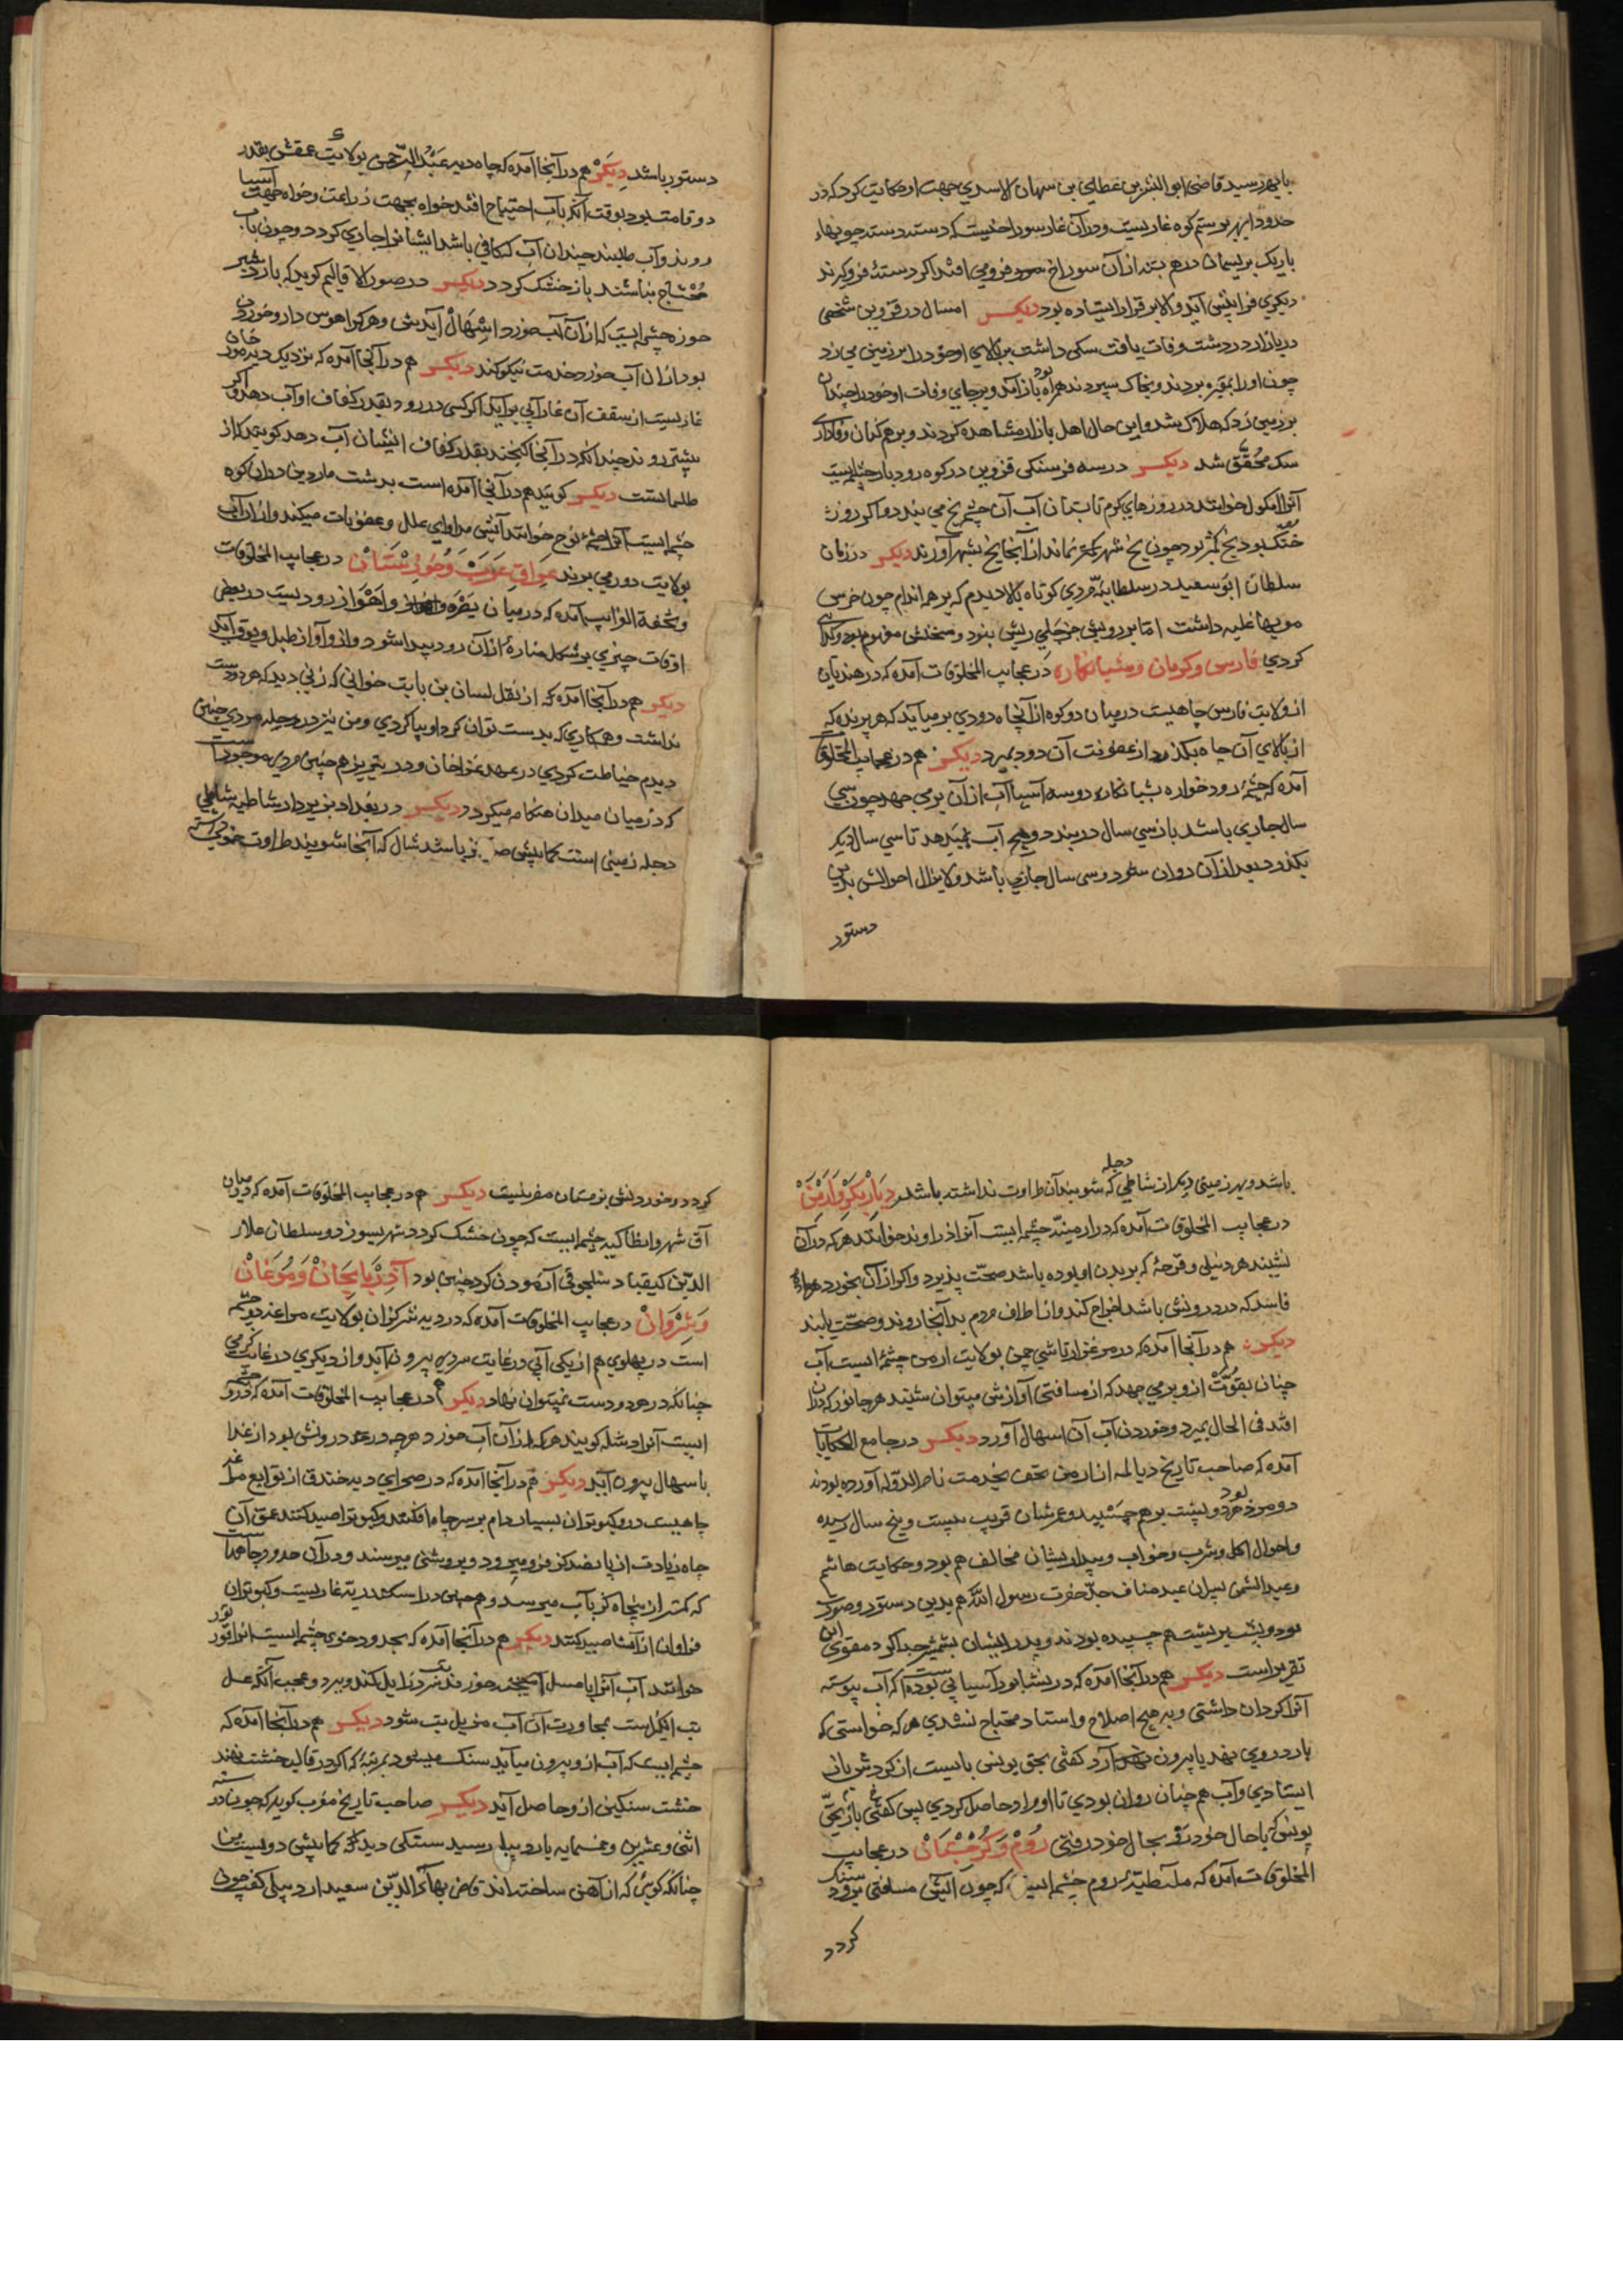 بابهر رسید قاضی ابو البشر بن عطایی بن سهان الاسدی جهت او حکایت کرد که در
حدود ابهر بوستم کوه غاریست و در آن غار سوراخیست که دسته دسته چوبهاء
باریک بریسمان درهم بسته از آن سوراخ فرو می افتد اگر دستهٔ فرو گیرند
دیگری فرا پیش آید والا بر قرار ایستاده بود دیگر امسال در قزوین شخصی
در بازار دردشت وفات یافت سگی داشت بر بالای او خود را بر زمین می زد
چون او را بمقبره بردند و بخاک سپردند همراه بود باز آمد و بر جای وفات او خود را چندان
بر زمین زد که هلاک شد و این حال اهل بازار مشاهده کردند و بر همکنان وفاداری
سک محقق شد دیگر در سه فرسنکی قزوین در کوه رودبار چشمه ایست
آنرا خوانند در روزهای گرم تابستان آب آن چشمه یخ می بندد و اگر روز
خنک بود یخ کمتر بود چون یخ شهر کمتر بماند از آنجا یخ بشهر آورند دیگر در زمان
سلطان ابو سعید در سلطانیه مردی کوتاه بالا دیدم که بر همه اندام چون خرس
مویها غلبه داشت اما بر رویش جز جای ریش نبود و سخنش مفهوم نبود و گدای
کردی فارس و کرمان و شبانکاره در عجایب المخلوقات آمده که در هندیان
از ولایت فارس چاهیست در میان دو کوه از آن چاه دودی بر میآید که هر پرنده که
از بالای آن چاه بگذرد از عفونت آن دود بمیرد دیگر هم در عجایب المخلوقات
آمده که چشمهٔ رود خواره بشبانکاره دو سه آسیا آب از آن بر می جهد چون سی
سال جاری باشد باز سی سال در بندد و هیچ آب نمیدهد تا سی سال دیگر
بگذرد بعد از آن روان شود و سی سال جاری باشد و لایزال احوالش بدین
دستور
دستور باشد دیگر هم در آنجا آمده که چاه دیه عبد الرحمن بولایت عمقش بقدر
دو قامت بود بوقت آنکه بآب احتیاج افتد خواه بجهت زراعت و خواه جهت آسیا
روند و آب طلبند چندان آب که کافی باشد ایشانرا جاری گردد و چون بآب
محتاج نباشند باز خشک گردد دیگر در صور الاقالیم گوید که بازدشیر
خوره چشمه ایست که از آن آب خورد اسهال آیدش و هر کرا هوس دارو خوردن
بود از آن آب خورد خدمت نیکو کند دیگر هم در آنجا آمده که نزدیک دیه مور خان
غاریست از سقف آن غار آبی بر آید اگر کسی در رود بقدر کفاف او آب دهد و اگر
بیشتر روند چندانکه در آنجا گنجند بقدر کفاف ایشان آب دهد گویند که از
طلسماتست دیگر گویند هم در آنجا آمده است بدشت ماردین در آن کوه
چشمه ایست آنرا چشمهٔ نوح خوانند آبش مداوای علل و عفونات میکند و از آن آب
بولایت دور می برند عراق عرب و خوزستان در عجایب المخلوقات
و تحفة الغرایب آمده که در میان بصره و اهواز رودیست در بعضی
اوقات چیزی بر شکل منارهٔ از آن رود پیدا شود و از و آواز طبل و بوق آید
دیگر هم در آنجا آمده که از نقل لسان بن بابت خوانی که زنی دید که هر دو دست
نداشت و همه کاری که بدست توان کرد او بپا کردی و من نیز در حله مردی چنین
دیدم خیاطت کردی در عهد غزاخان و در تبریز هم چنین مردی موجود است
که در میان میدان هنگامه میگردد دیگر در بغداد بزیر دار شاطبه شاطی
دجله زمینی است کمابیش صد گز باشد شال که آنجا شویند طراوت خوش داشته
باشد و بهر زمینی دیگر از شاطی دجله که شویند آن طراوت نداشته باشد دیار بکر و ارمن
در عجایب المخلوقات آمده که در ارمینه چشمه ایست آنرا ذراوند خوانند هر که در آن
نشیند هر دنبلی و قرحهٔ که بر بدن او بوده باشد صحت پذیرد و اگر از آن بخورد هر مادهٔ
فاسد که در درونش باشد اخراج کند و از اطراف مردم بدآنجا روند و صحت یابند
دیگر هم در آنجا آمده که در مرغزار تاشی چمن بولایت ارمن چشمهٔ ایست آب
چنان بقوت از و بر می جهد که از مسافتی آوازش میتوان شنید هر جانور که در آن
افتد فی الحال بمیرد و خوردن آب آن اسهال آورد دیگر در جامع الحکایات
آمده که صاحب تاریخ دیالمه از ارمن تحف بخدمت ناصر الدوله آورده بودند
دو مرد بود هر دو پشت بر هم چسبیده و عمرشان قریب بیست و پنج سال رسیده
و احوال اکل و شرب و خواب و بیداریشان مخالف هم بود و حکایت هاشم
و عبد الشمس پسران عبد مناف جد حضرت رسول الله هم بدین دستور و صورت
بود و پشت بر پشت هم چسبیده بودند و پدر ایشان بشمشیر جدا کرد مقوی این
تقریر است دیگر هم در آنجا آمده که در نشابور آسیائی بوده است که آب پیوسته
آنرا گردان داشتی و به هیچ اصلاح و استاد محتاج نشدی هر که خواستی که
بار در وی نهد یا بیرون آرد گفتی بحق یونس بایست از گردش باز
ایستادی و آب هم چنان روان بودی تا او مراد حاصل کردی پس گفتی باز بحق
یونس که با حال خود رو بحال خود رفتی روم و گرجستان در عجایب
المخلوقات آمده که ملطیهٔ روم چشمه ایست که چون آبش مسافتی برود سنک
گردد
گردد و خوردنش بزمستان مضر نیست دیگر هم در عجایب المخلوقات آمده که در میان
آق شهر و انطاکیه چشمه ایست که چون خشک گردد شهر بسوزد و سلطان علاء
الدین کیقباد سلجوقی آزمودن کرد چنین بود آذربایجان و موغان
و شروان در عجایب المخلوقات آمده که در دیه شرکوان بولایت مراغه دو چشمه
است در پهلوی هم از یکی آبی در غایت سردی بیرون آید و از دیگری در غایت گرمی
چنانکه در هر دو دست نمیتوان نهاد دیگر هم در عجایب المخلوقات آمده که در رو چشمه
ایست آنرا دشله گویند هر که از آن آب خورد هر چه در درونش بود از غذا
باسهال بیرون آید دیگر هم در آنجا آمده که در صحرای دیه خندق از توابع مراغه
چاهیست در و کبوتران بسیار دام بر سر چاه افکنند و کبوتر صید کنند عمق آن
چاه زیادت از پانصد گز فرو میرود و بروشنی میرسند و در آن حدود چاهها است
که کمتر از پنجاه گز بآب میرسد و هم چنین در اسکندریه غاریست و کبوتران
فراوان از آنجا صید کنند دیگر هم در آنجا آمده که بحدود خوی چشمه ایست انرا قور نور
خوانند آب آنرا با عسل آمیخته خورند تب زایل کند و ببرد و عجب آنکه عسل
تب انگیز است بمجاورت آن آب مزیل تب شود دیگر هم در آنجا آمده که
چشمه ایست که آب از و بیرون میآید سنک میشود بمرتبهٔ که اگر در قالب خشت نهند
خشت سنگین از و حاصل آید دیگر صاحب تاریخ مغرب گوید که چون در سنه
اثنی و عشرین و خمسمایه باردبیل رسید سنگی دید که کمابیش دویست من
چنانکه گویی که از آهن ساخته اند قاضی بهاء الدین سعید اردبیلی گفت چون